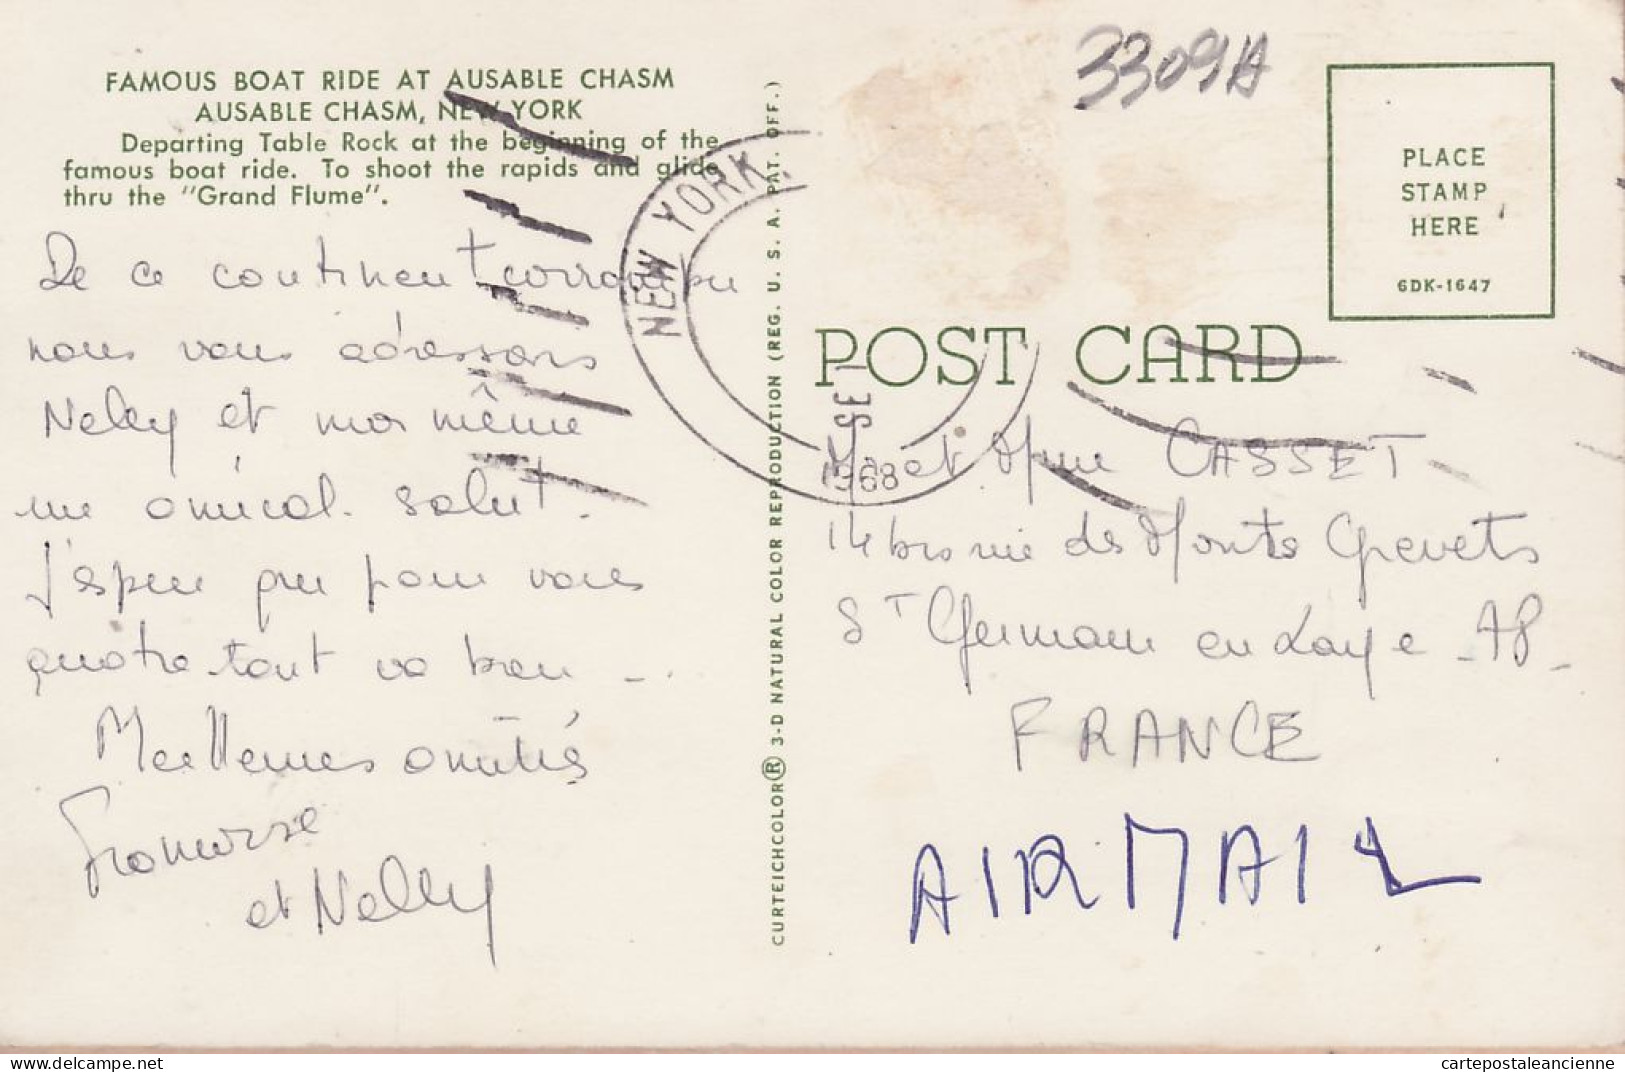 FAMOUS BOAT RIDE AT AUSABLE CHASM
AUSABLE CHASM, NEW YORK
Departing Table Rock at the beginning of the
famous boat ride. To shoot the rapids and glide
thru the "Grand Flume".
De ce continent corrompu
nous vous adressons
Nelly et moi même
un amical salut.
J'espère que pour vous
quatre tout va bien - ..
Meilleures amitiés
et Nelly
CURTEICHCOLOR® 3-D NATURAL COLOR REPRODUCTION (REG. U. S. A. PAT. OFF.)
NEW YORK,
SE
1968
3309A
PLACE
STAMP
HERE
6DK-1647
POST CARD
M. et Mme CASSET
14 bis rue des Monts Grevets
ST Germain en Laye - 78 -
FRANCE
AIRMAIL
www.delcampe.net
cartepostaleancienne